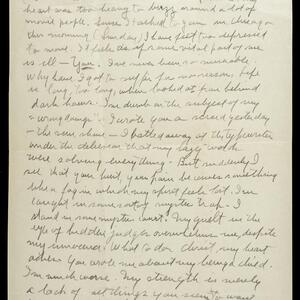 heart was too heavy to buzz around a lot of
movie people. Since I talked to you in Chicago
this morning (Sunday) I have felt too depressed
to move. I feel as if some vital part of me
is ill — You. I've never been so miserable.
Why have I got to suffer for no reason, life
is long, too long, when looked at from behind
dark hours. I'm dumb on the subject of my
"wrongdoings". I wrote you a screed yesterday
— the sun shone — I batted away at the typewriter
under the delusion that my lazy was
were solving everything. But suddenly I
see that you hurt, your pain becomes something
like a fog in which my spirit feels lost. I'm
caught in some sort of mystery trap. I
stand in some mystery court. My guilt in the
eyes of hidden judges overwhelms me, despite
my innocence. What to do? Christ, my heart
aches. You wrote me about my being a child.
I'm much worse. My strength is merely
a lack of all things you seem to want